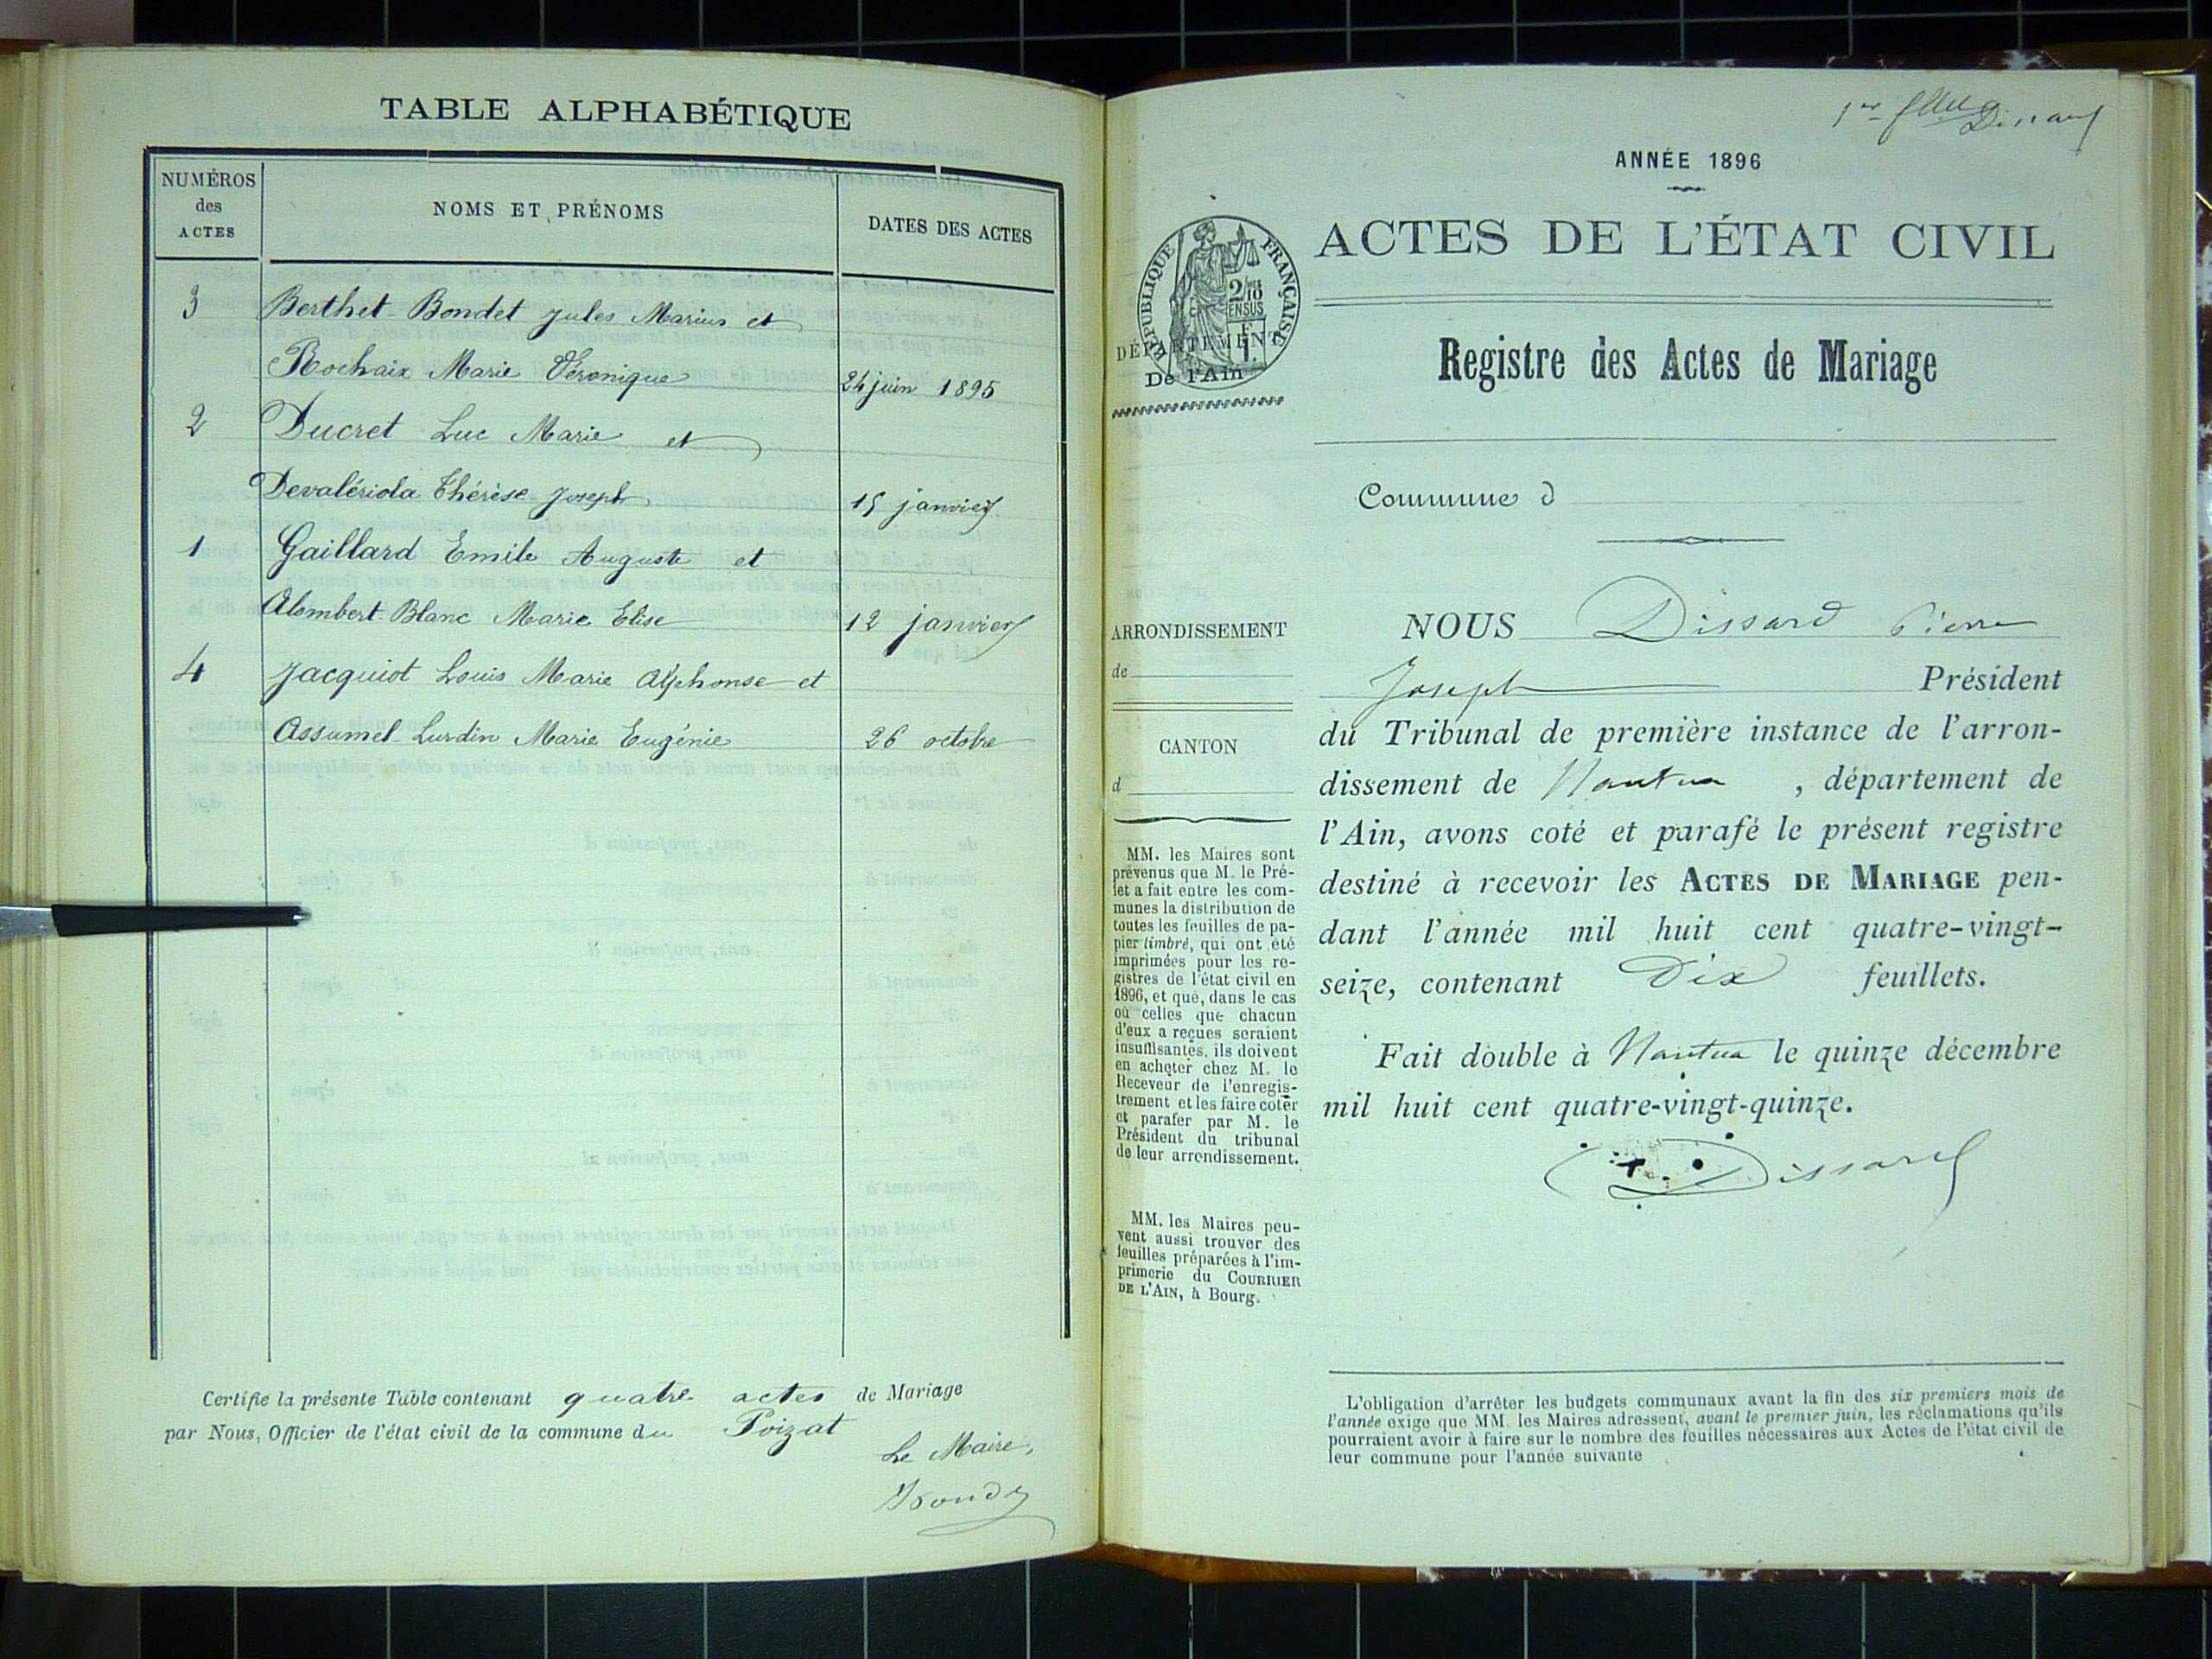 TABLE ALPHABÉTIQUE
NUMÉROS
des
ACTES
NOMS ET PRÉNOMS
DATES DES ACTES
3 Berthet-Bondet Jules Marius et
Rochaix Marie Véronique 24 juin 1895
2 Ducret Luc Marie et
Devalériola Thérèse Joseph 15 janvier
1 Gaillard Emile Auguste et
Alombert Blanc Marie Elise 12 janvier
4 Jacquiot Louis Marie Alphonse et
Assumel-Lurdin Marie Eugénie 26 octobre
Certifie la présente Table contenant quatre actes de Mariage
par Nous, Officier de l'état civil de la commune du Poizat
Le Maire,
1er
Dissard
ANNÉE 1896
ACTES DE L'ÉTAT CIVIL
RÉPUBLIQUE FRANÇAISE
2/10
EN SUS
1 F.
DÉPARTEMENT
De l'Ain
Registre des Actes de Mariage
Commune d
ARRONDISSEMENT
de
CANTON
d
MM. les Maires sont
prévenus que M. le Pré-
fet a fait entre les com-
munes la distribution de
toutes les feuilles de pa-
pier timbré, qui ont été
imprimées pour les re-
gistres de l'état civil en
1896, et que, dans le cas
où celles que chacun
d'eux a reçues seraient
insuffisantes, ils doivent
en acheter chez M. le
Receveur de l'enregis-
trement et les faire coter
et parafer par M. le
Président du tribunal
de leur arrondissement.
MM. les Maires peu-
vent aussi trouver des
feuilles préparées à l'im-
primerie du COURRIER
DE L'AIN, à Bourg.
NOUS Dissard Pierre
Joseph Président
du Tribunal de première instance de l'arron-
dissement de Nantua , département de
l'Ain, avons coté et parafé le présent registre
destiné à recevoir les ACTES DE MARIAGE pen-
dant l'année mil huit cent quatre-vingt-
seize, contenant Dix feuillets.
Fait double à Nantua le quinze décembre
mil huit cent quatre-vingt-quinze.
Dissard
L'obligation d'arrêter les budgets communaux avant la fin des six premiers mois de
l'année exige que MM. les Maires adressent, avant le premier juin, les réclamations qu'ils
pourraient avoir à faire sur le nombre des feuilles nécessaires aux Actes de l'état civil de
leur commune pour l'année suivante